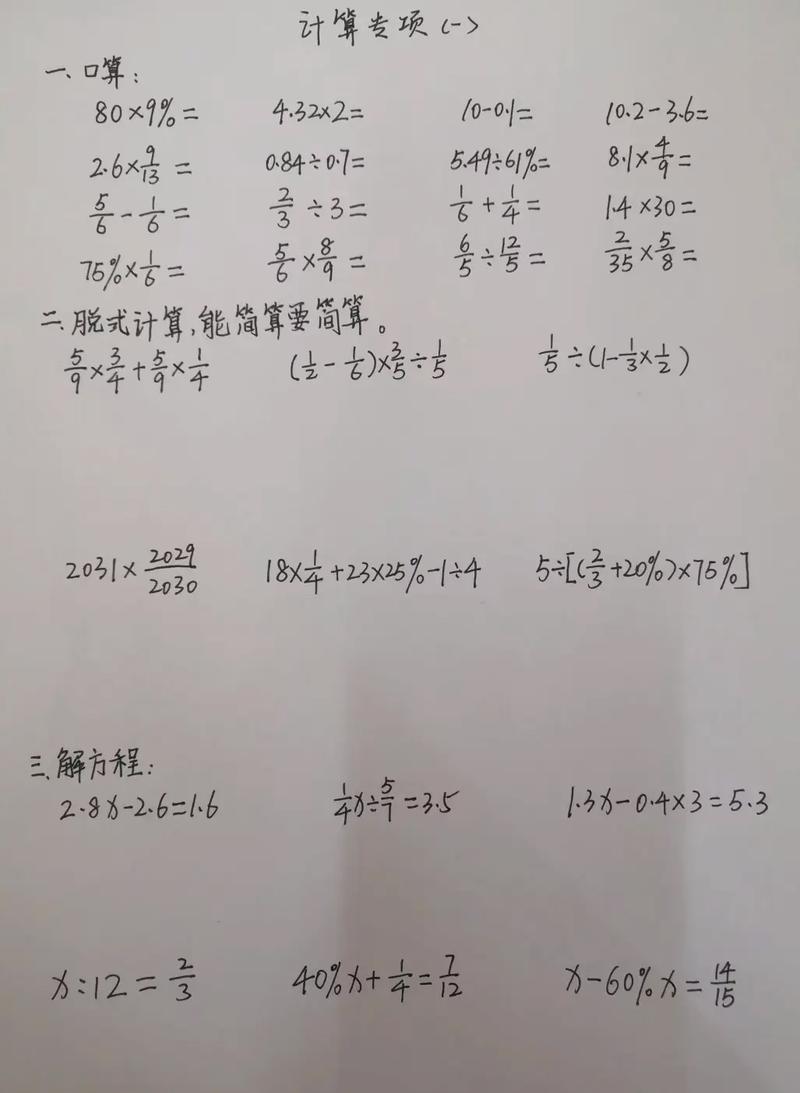 计算专项(一)
一、口算:
80×9%= 4.32×2= 10-0.1= 10.2-3.6=
2.6×9/13= 0.84÷0.7= 5.49÷61%= 8.1×4/9=
5/6-1/6= 2/3÷3= 1/6+1/4= 1.4×30=
75%×1/6= 5/6×8/9= 6/5÷12/5= 2/35×5/8=
二、脱式计算,能简算要简算。
5/9×3/4+5/9×1/4 (1/2-1/6)×3/5÷1/5 1/5÷(1-1/3×1/2)
2031×2029/2030 18×1/4+23×25%-1÷4 5÷[(2/3+20%)×75%]
三、解方程:
2.8x-2.6=1.6 1/4x÷5/7=3.5 1.3x-0.4×3=5.3
x:12=2/3 40%x+1/4=7/12 x-60%x=14/15